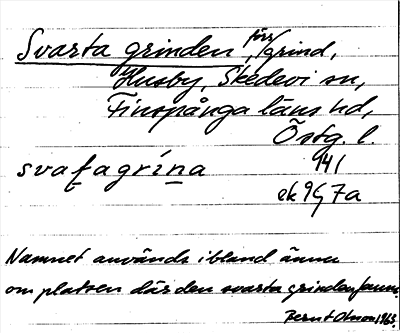 Svarta grinden, förr/grind,
Husby, Skedevi sn,
Finspånga läns hd,
Östg. l.
svaṯagrína 941
ek 9G 7a
Namnet används ibland ännu
om platsen där den svarta grinden fanns.
Bernt Olsson 1963